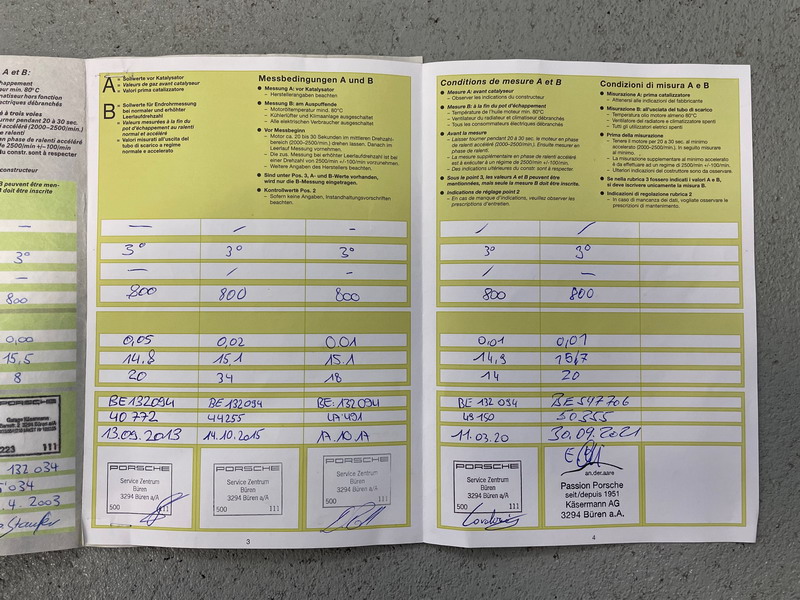 A et B:
A
= Sollwerte vor Katalysator
= Valeurs de gaz avant catalyseur
= Valori prima catalizzatore
B
= Sollwerte für Endrohrmessung
bei normaler und erhöhter
Leerlaufdrehzahl
= Valeurs mesurées à la fin
du pot d'échappement au ralenti
normal et accéléré
= Valori misurati all'uscita del
tubo di scarico a regime
normale e accelerato
Messbedingungen A und B
Messung A: vor Katalysator
– Herstellerangaben beachten
Messung B: am Auspuffende
– Motoröltemperatur mind. 80°C
– Kühlerlüfter und Klimaanlage ausgeschaltet
– Alle elektrischen Verbraucher ausgeschaltet
Vor Messbeginn
– Motor ca. 20 bis 30 Sekunden im mittleren Drehzahl-
bereich (2000–2500/min.) drehen lassen. Danach im
Leerlauf Messung vornehmen.
– Die zus. Messung bei erhöhter Leerlaufdrehzahl ist bei
einer Drehzahl von 2500/min +/-100/min vorzunehmen.
– Weitere Angaben des Herstellers beachten.
Sind unter Pos. 3, A- und B-Werte vorhanden,
wird nur die B-Messung eingetragen.
Kontrollwerte Pos. 2
– Sofern keine Angaben, Instandhaltungsvorschriften
beachten.
3°
3°
3°
800
800
800
0,05
0,02
0.01
14,8
15,1
15.1
20
34
18
BE132094
BE 132094
BE: 132094
40 772
44255
13.09.2013
14.10.2015
PORSCHE
Service Zentrum
Büren
3294 Büren a/A
500 111
PORSCHE
Service Zentrum
Büren
3294 Büren a/A
500 111
PORSCHE
Service Zentrum
Büren
3294 Büren a/A
500 111
3
Conditions de mesure A et B
Mesure A: avant catalyseur
– Observer les indications du constructeur
Mesure B: à la fin du pot d'échappement
– Température de l'huile moteur min. 80°C
– Ventilateur du radiateur et climatiseur débranchés
– Tous les consommateurs électriques débranchés
Avant la mesure
– Laisser tourner pendant 20 à 30 sec. le moteur en phase
de ralenti accéléré (2000–2500/min.). Ensuite mesurer en
phase de ralenti.
– La mesure supplémentaire en phase de ralenti accéléré
est à exécuter à un régime de 2500/min +/-100/min
– Des indications ultérieures du constr. sont à respecter.
Sous le point 3, les valeurs A et B peuvent être
mentionnées, mais seule la mesure B doit être inscrite.
Indications de réglage point 2
– En cas de manque d'indications, veuillez observer les
prescriptions d'entretien.
Condizioni di misura A e B
Misurazione A: prima catalizzatore
– Attenersi alle indicazioni del fabbricante
Misurazione B: all'uscita del tubo di scarico
– Temperatura olio motore almeno 80°C
– Ventilatore del radiatore e climatizzatore spenti
– Tutti gli utilizzatori elettrici spenti
Prima della misurazione
– Tenere il motore per 20 a 30 sec. al minimo
accelerato (2000–2500/min.). In seguito misurare
al minimo.
– La misurazione supplementare al minimo accelerato
è da effettuare ad un regime di 2500/min +/-100/min.
– Ulteriori indicazioni del costruttore sono da osservare.
Se nella rubrica 3 fossero indicati i valori A e B,
si deve iscrivere unicamente la misura B.
Indicazioni di regolazione rubrica 2
– In caso di mancanza dei dati, vogliate osservare le
prescrizioni di mantenimento.
3°
3°
800
800
0,01
0,01
14,9
15,7
14
20
BE 132 094
BE 547706
49 150
50355
11.03.20
30.09.2021
PORSCHE
Service Zentrum
Büren
3294 Büren a/A
500 111
an.der.aare
Passion Porsche
seit/depuis 1951
Käsermann AG
3294 Büren a.A.
4
3°
800
0,00
15,5
8
PORSCHE